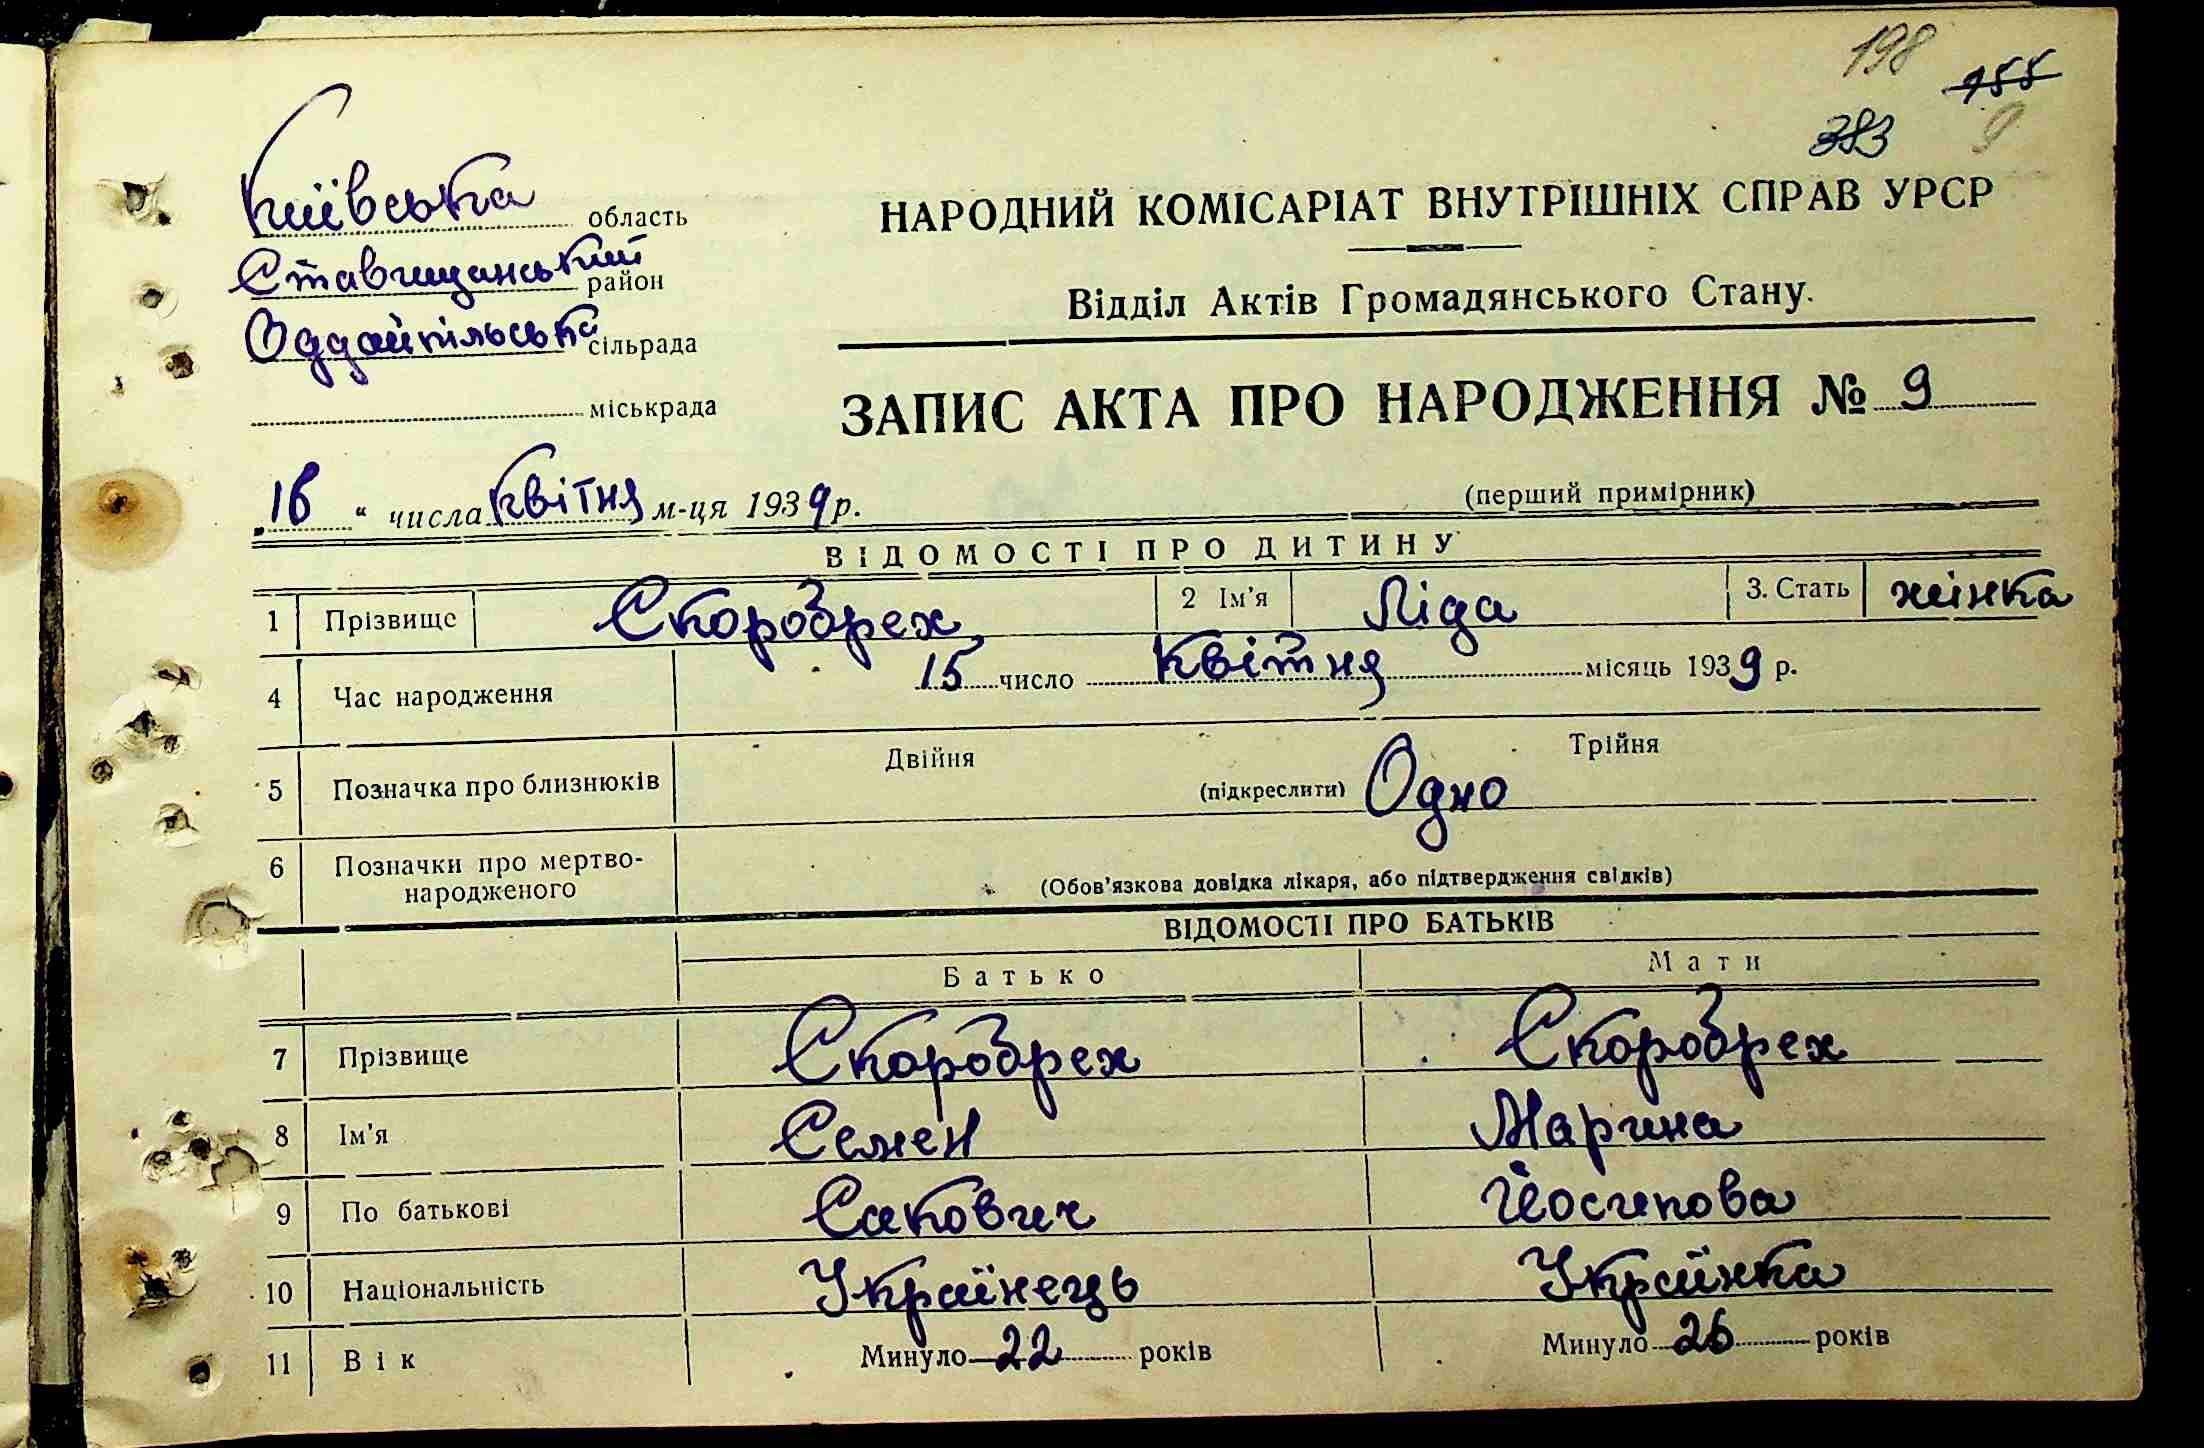 198
155
383 9
Київська область
Ставищанський район
Оддайпільська сільрада
міськрада
НАРОДНИЙ КОМІСАРІАТ ВНУТРІШНІХ СПРАВ УРСР
Відділ Актів Громадянського Стану.
ЗАПИС АКТА ПРО НАРОДЖЕННЯ № 9
„16“ числа квітня м-ця 1939 р.
(перший примірник)
ВІДОМОСТІ ПРО ДИТИНУ
1 Прізвище Скоробрех 2 Ім'я Ліда 3. Стать жінка
4 Час народження 15 число квітня місяць 1939 р.
5 Позначка про близнюків Двійня (підкреслити) Одно Трійня
6 Позначки про мертво-
народженого (Обов'язкова довідка лікаря, або підтвердження свідків)
ВІДОМОСТІ ПРО БАТЬКІВ
Батько Мати
7 Прізвище Скоробрех Скоробрех
8 Ім'я Семен Марина
9 По батькові Сакович Йосипова
10 Національність Українець Українка
11 Вік Минуло 22 років Минуло 26 років